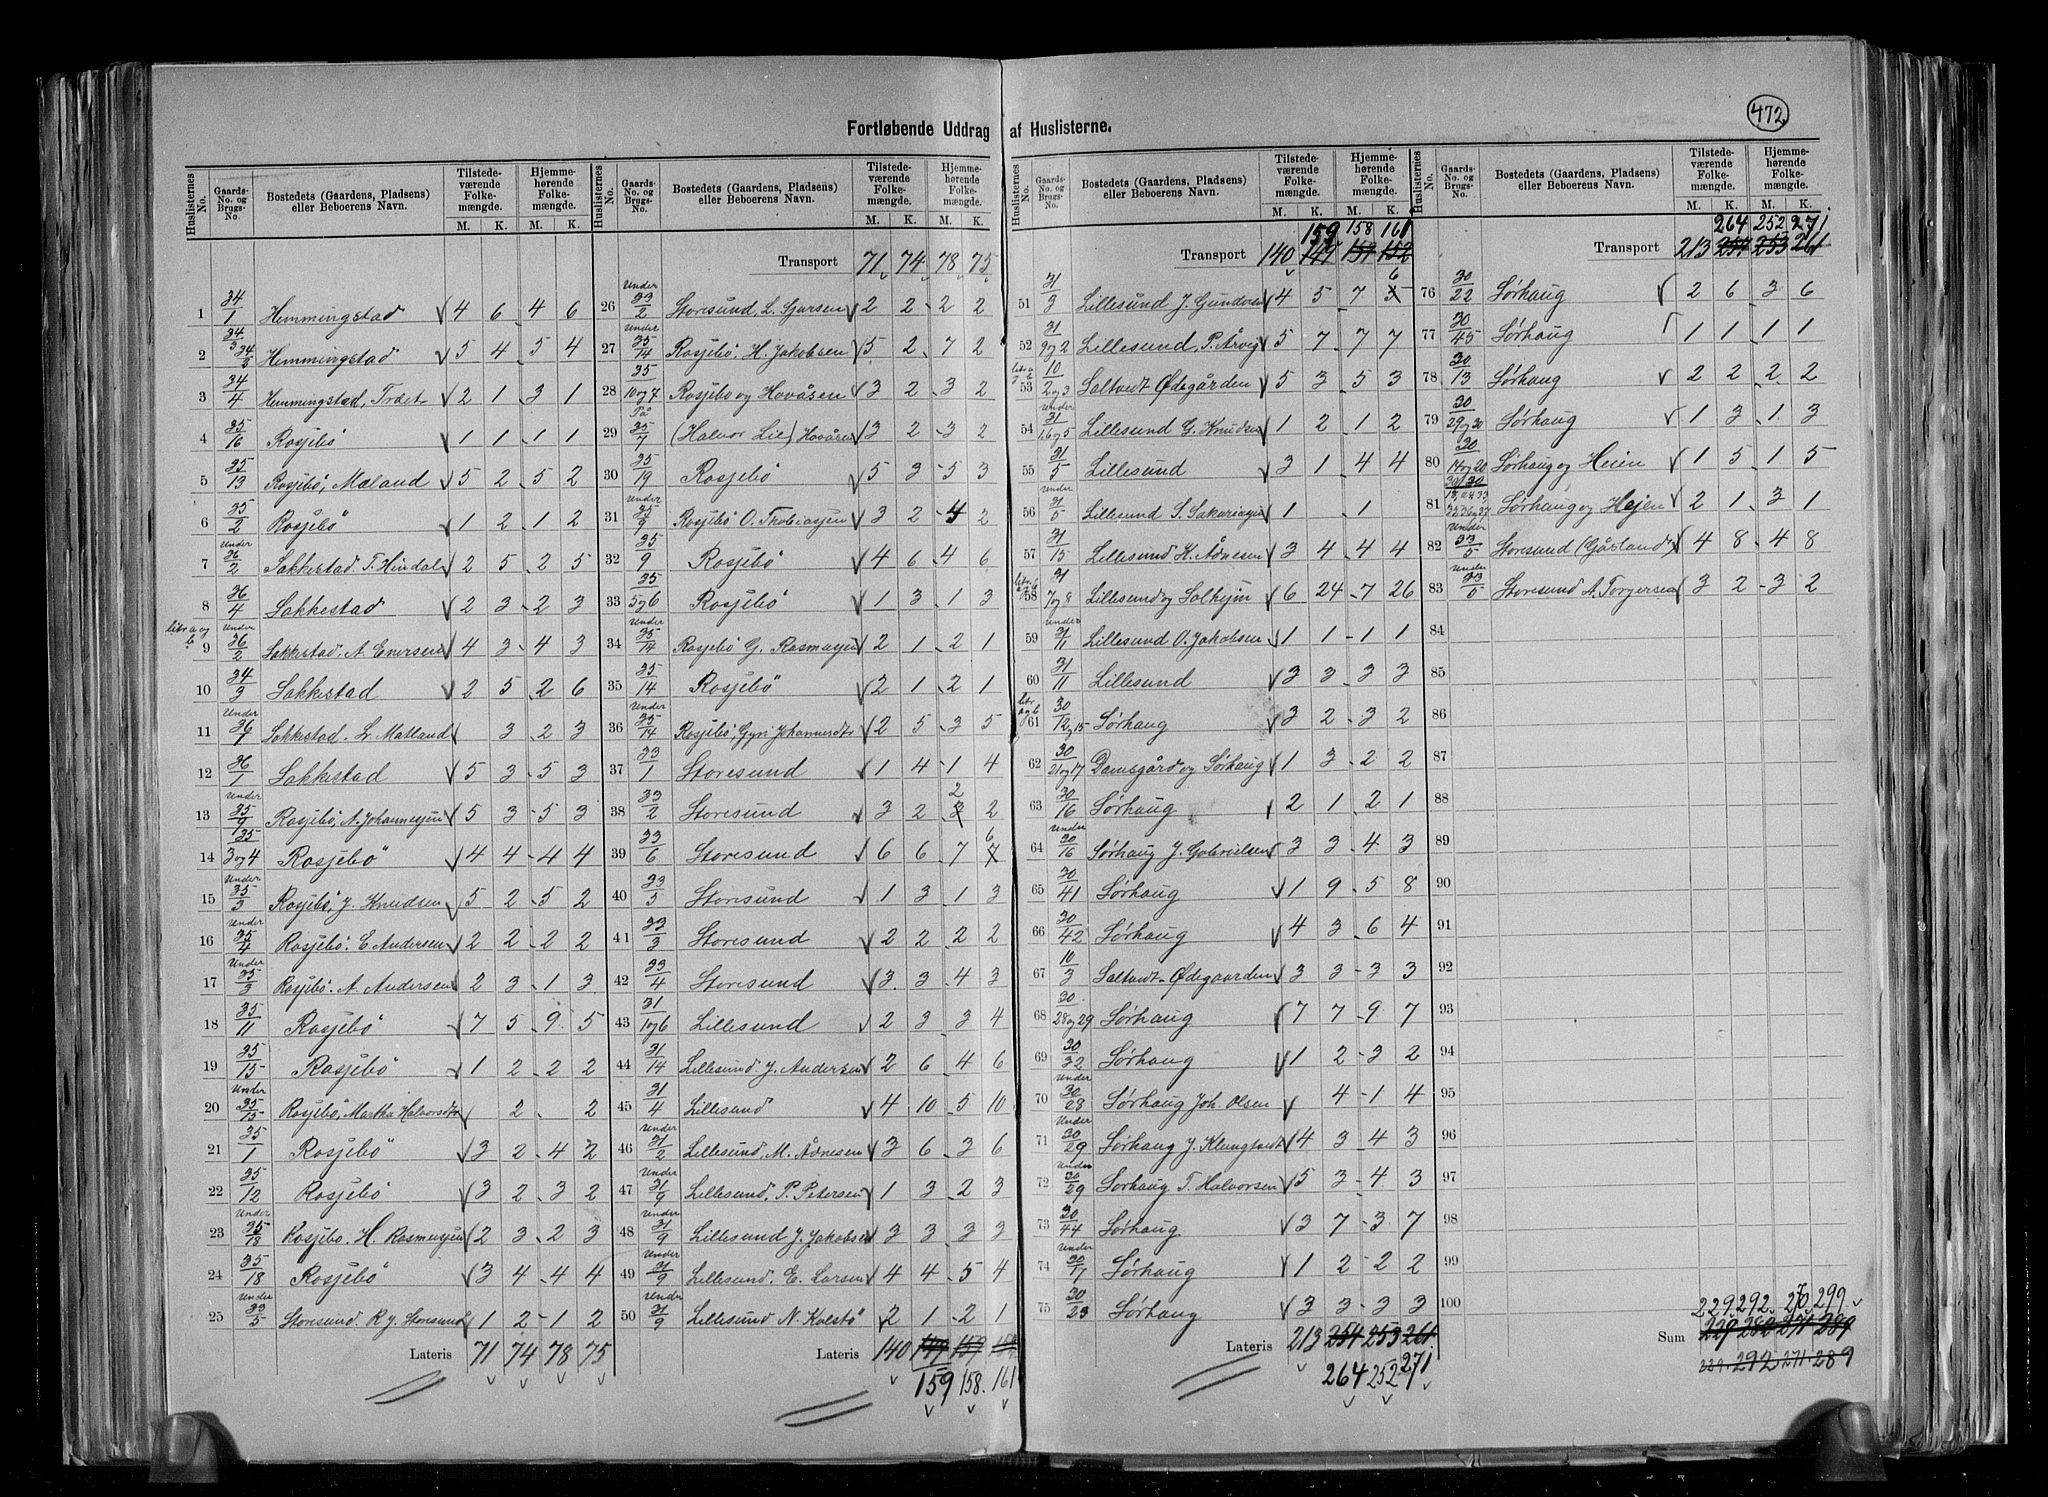 472
Fortløbende Uddrag af Huslisterne.
Huslisternes No. | Gaards-No. og Brugs-No. | Bostedets (Gaardens, Pladsens) eller Beboerens Navn. | Tilstedeværende Folkemængde. M. K. | Hjemmehørende Folkemængde. M. K.
1 34/1 Hemmingstad 4 6 4 6
2 34/3 34/2 Hemmingstad 5 4 5 4
3 34/4 Hemmingstad, Træet 2 1 3 1
4 35/16 Rosjebö 1 1 1 1
5 35/13 Rosjebö, Mæland 5 2 5 2
6 35/2 Rosjebö 1 2 1 2
7 Under 36/2 Sakkestad T. Hindal 2 5 2 5
8 36/4 Sakkestad 2 3 2 3
litr a og b 9 Under 36/2 Sakkestad, A. Enersen 4 3 4 3
10 34/3 Sakkestad 2 5 2 6
11 Under 36/1 Sakkestad. L. Matland 3 2 3
12 36/1 Sakkestad 5 3 5 3
13 Under 35/9 Rosjebö, A. Johannesjen 5 3 5 3
14 35/3 og 4 Rosjebö 4 4 4 4
15 Under 35/3 Rosjebö, J. Knudsen 5 2 5 2
16 Under 35/4 Rosjebö. E. Andersen 2 2 2 2
17 Under 35/3 Rosjebö. A. Andersen 2 3 1 3
18 35/11 Rosjebö 7 5 9 5
19 35/15 Rosjebö 1 2 2 2
20 Under 35/15 Rosjebö, Martha Halvorsdtr 2 2
21 35/1 Rosjebö 3 2 4 2
22 35/12 Rosjebö 3 2 3 2
23 Under 35/18 Rosjebö. H. Rasmusjen 2 3 2 3
24 35/18 Rosjebö 3 4 4 4
25 Under 33/5 Storesund. R. J. Storesund 1 2 1 2
Lateris 71 74 78 75
Huslisternes No. | Gaards-No. og Brugs-No. | Bostedets (Gaardens, Pladsens) eller Beboerens Navn. | Tilstedeværende Folkemængde. M. K. | Hjemmehørende Folkemængde. M. K.
Transport 71 74 78 75
26 Under 33/2 Storesund, L. Sjursen 2 2 2 2
27 Under 35/14 Rosjebö, H. Jakobsen 5 2 7 2
28 35/10 og 7 Rosjebö og Hovåsen 3 2 3 2
29 På 35/7 (Halvor Lie) Hovåsen 3 2 3 2
30 35/19 Rosjebö 5 3 5 3
31 Under 35/9 Rosjebö O. Thobiasjen 3 2 2
32 35/9 Rosjebö 4 6 4 6
33 35/5 og 6 Rosjebö 1 3 1 3
34 Under 35/14 Rosjebö G. Rasmusjen 2 1 2 1
35 35/14 Rosjebö 2 1 2 1
36 Under 35/14 Rosjebö, Gyri Johannesdtr 2 5 3 5
37 33/1 Storesund 1 4 1 4
38 33/2 Storesund 3 2 3 2 2
39 33/6 Storesund 6 6 7 7 6
40 33/5 Storesund 1 3 1 3
41 33/3 Storesund 2 2 2 2
42 33/4 Storesund 3 3 4 3
43 31/1 og 6 Lillesund 2 3 3 4
44 31/14 Lillesund. J. Andersen 2 6 4 6
45 31/4 Lillesund 4 10 5 10
46 Under 31/2 Lillesund, M. Ådnesen 3 6 3 6
47 Under 31/9 Lillesund, P. Petersen 1 3 2 3
48 Under 31/9 Lillesund J. Jakobsen 3 3 3 3
49 Under 31/9 Lillesund, E. Larsen 4 4 5 4
50 Under 31/9 Lillesund N. Kolstö 2 1 2 1
Lateris 140 149 159
159 158. 161
Huslisternes No. | Gaards-No. og Brugs-No. | Bostedets (Gaardens, Pladsens) eller Beboerens Navn. | Tilstedeværende Folkemængde. M. K. | Hjemmehørende Folkemængde. M. K.
159 158 161
Transport 140 149 152
51 31/3 Lillesund J. Gundersen 4 5 7 6
52 31/9 og 2 Lillesund, P. Årvig 5 7 7 7
53 10/2 og 3 Saltvedt Ødegården 5 3 5 3
54 Under 31/16 og 5 Lillesund G. Knudsen 1 2 1 2
55 31/5 Lillesund 3 1 4 4
56 Under 31/5 Lillesund S. Sakariasjen 1 1
57 31/15 Lillesund K. Ådnesen 3 4 4 4
58 31/7 og 8 Lillesund og Solhejm 6 24 7 26
59 Under 31/11 Lillesund O. Jakobsen 1 1 1 1
60 31/11 Lillesund 3 3 3 3
litr a og b 61 30/12 og 15 Sørhaug 3 2 3 2
62 30/21 og 17 Damsgård og Sørhaug 1 3 2 2
63 30/16 Sørhaug 2 1 2 1
64 Under 30/16 Sørhaug J. Gabrielsen 3 3 4 3
65 30/41 Sørhaug 1 9 5 8
66 30/42 Sørhaug 4 3 6 4
67 10/3 Saltvedt Ødegaarden 3 3 3 3
68 30/28 og 29 Sørhaug 7 7 9 7
69 30/32 Sørhaug 1 2 3 2
70 Under 30/28 Sørhaug Joh. Olsen 4 1 4
71 Under 30/29 Sørhaug J. Klungtvedt 4 3 4 3
72 Under 30/29 Sørhaug T. Halvorsen 5 3 4 3
73 30/44 Sørhaug 3 7 3 7
74 Under 30/17 Sørhaug 1 2 2 2
75 30/23 Sørhaug 3 3 3 3
Lateris 213 254 253 261
264 252 271
Huslisternes No. | Gaards-No. og Brugs-No. | Bostedets (Gaardens, Pladsens) eller Beboerens Navn. | Tilstedeværende Folkemængde. M. K. | Hjemmehørende Folkemængde. M. K.
264 252 271
Transport 213 254 253 261
76 30/22 Sørhaug 2 6 3 6
77 30/45 Sørhaug 1 1 1 1
78 30/13 Sørhaug 2 2 2 2
79 30/29 og 30 Sørhaug 1 3 1 3
80 30/14 og 20 Sørhaug og Heien 1 5 1 5
81 Sørhaug og Hejen 2 1 3 1
82 Under 33/5 Storesund (Gåsland) 4 8 4 8
83 Under 33/5 Storesund A. Torgersen 3 2 3 2
84
85
86
87
88
89
90
91
92
93
94
95
96
97
98
99
100
229. 292. 270 299
Sum 229 282 271 289
229. 292 271. 289